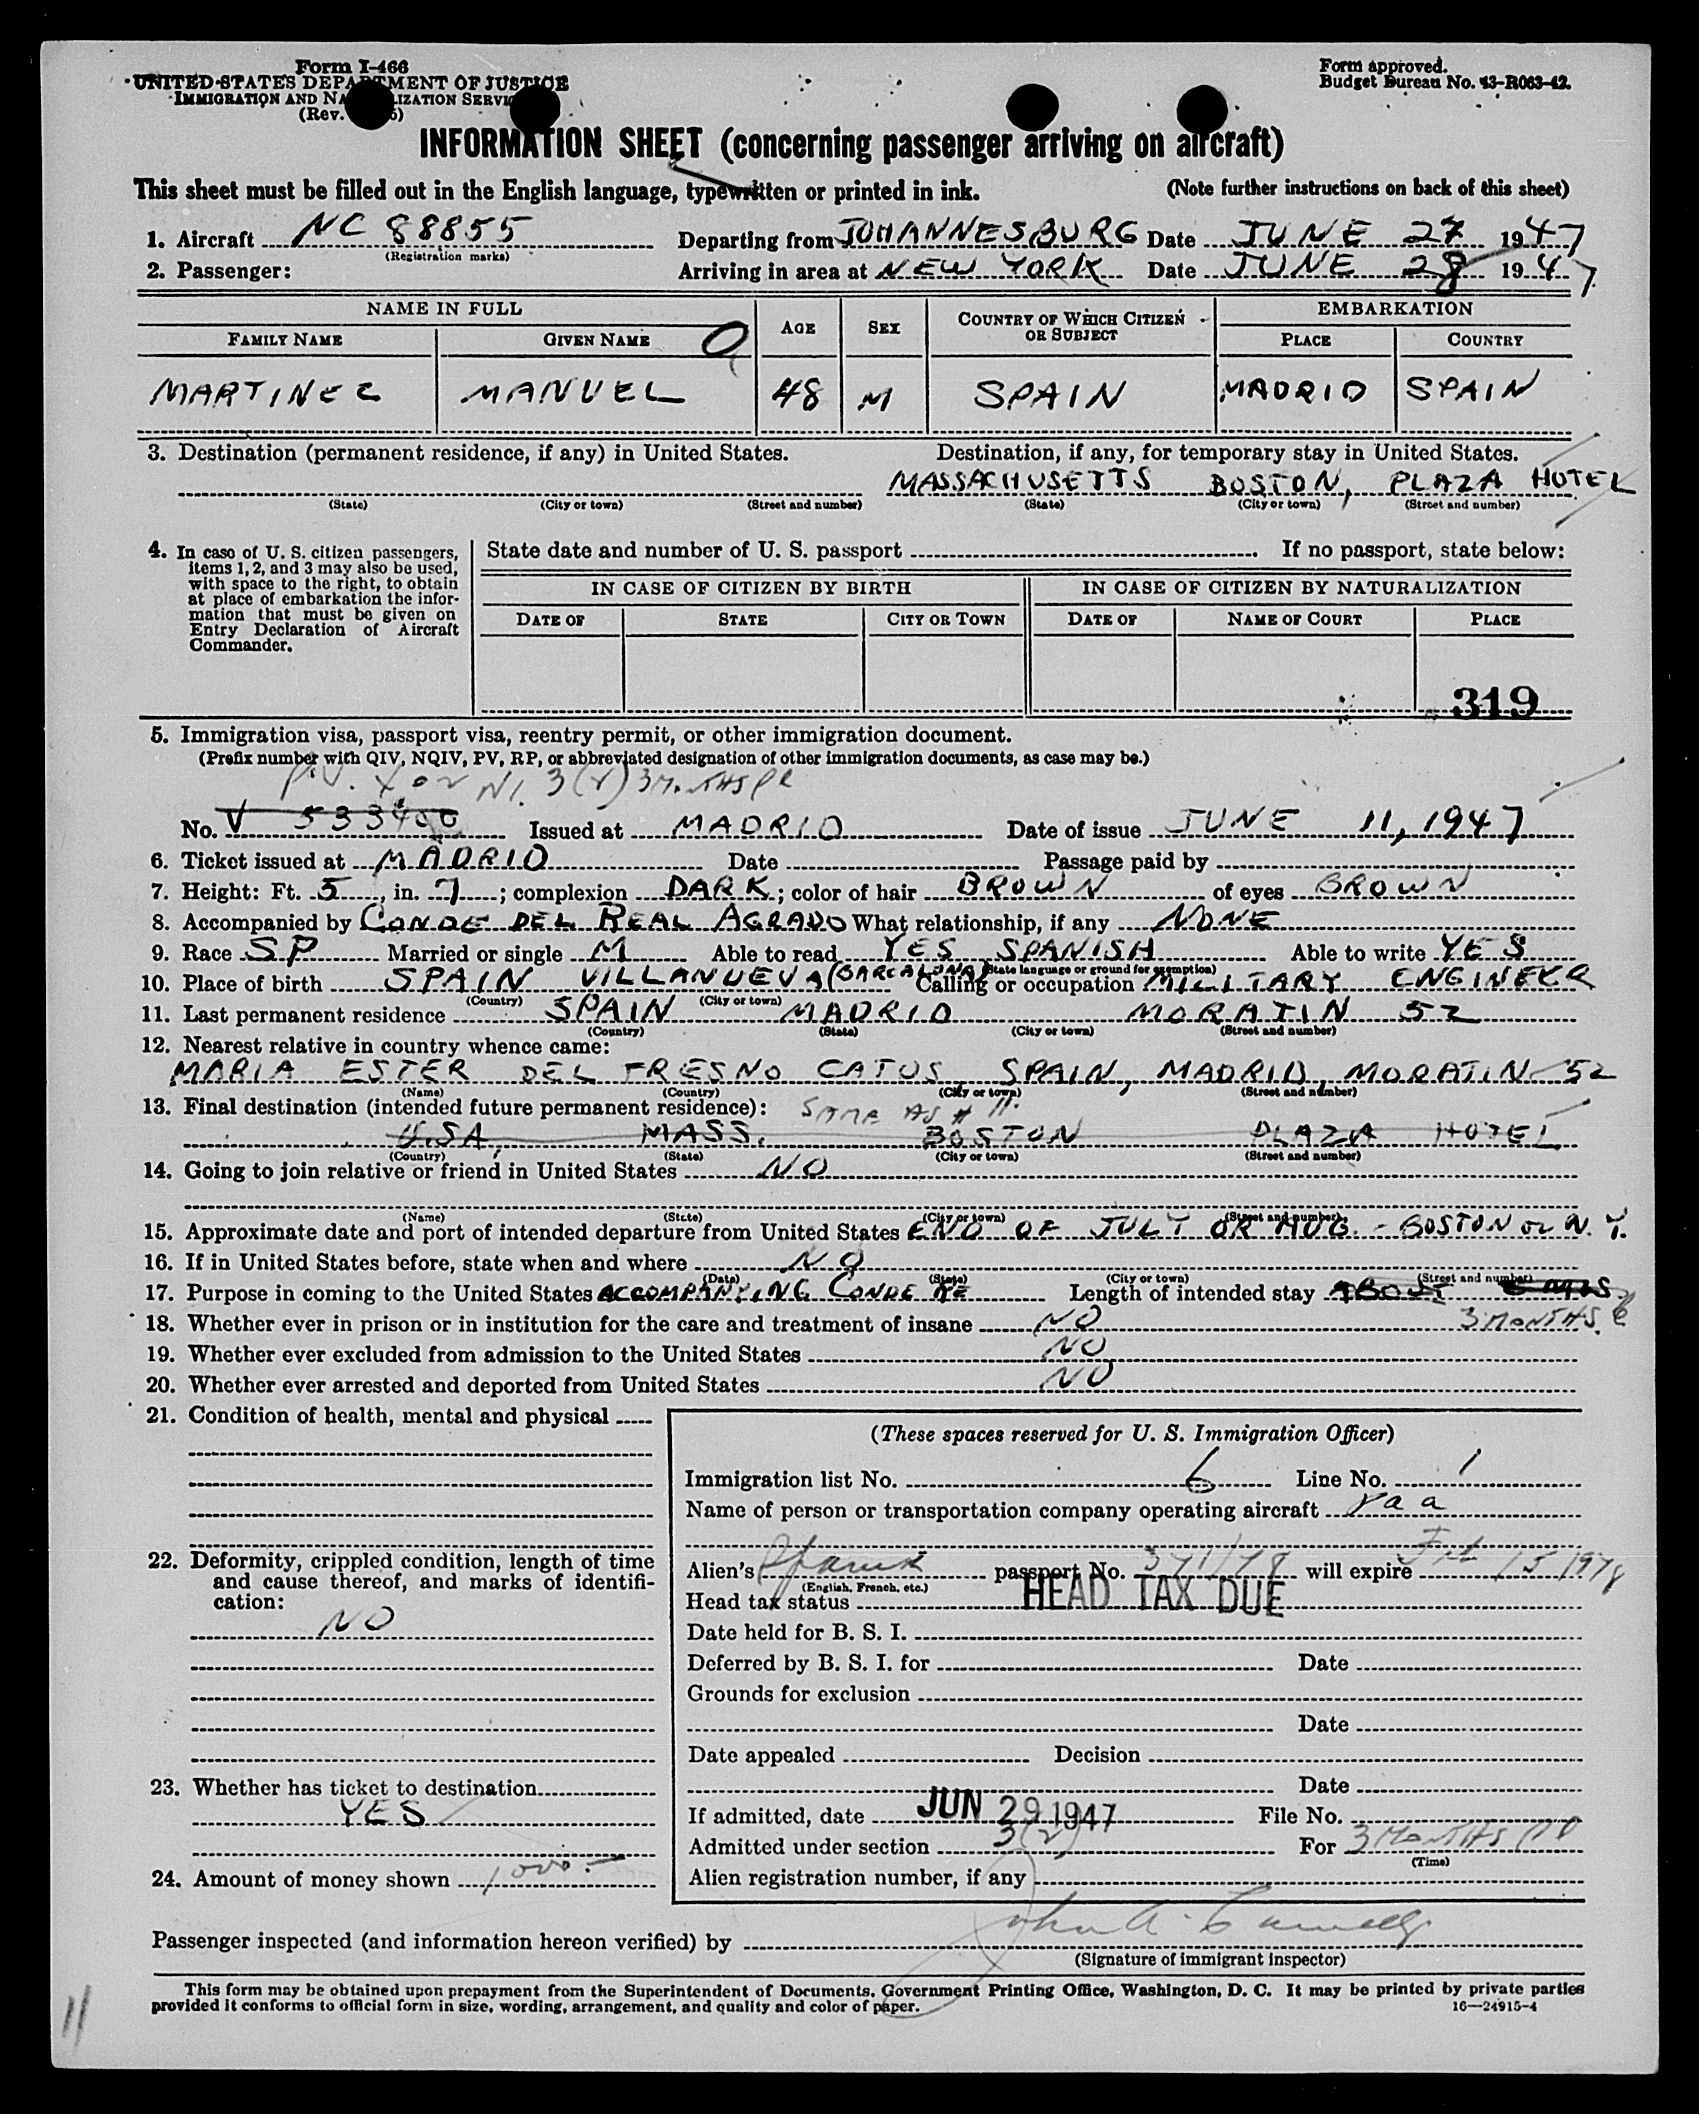 Form I-466
UNITED STATES DEPARTMENT OF JUSTICE
IMMIGRATION AND NATURALIZATION SERVICE
(Rev.
Form approved.
Budget Bureau No. 43-R063-42.
INFORMATION SHEET (concerning passenger arriving on aircraft)
This sheet must be filled out in the English language, typewritten or printed in ink. (Note further instructions on back of this sheet)
1. Aircraft NC 88855 Departing from JOHANNESBURG Date JUNE 27 1947
(Registration marks)
2. Passenger: Arriving in area at NEW YORK Date JUNE 28 1947
NAME IN FULL AGE SEX COUNTRY OF WHICH CITIZEN OR SUBJECT EMBARKATION
FAMILY NAME GIVEN NAME PLACE COUNTRY
MARTINEZ MANUEL 48 M SPAIN MADRID SPAIN
3. Destination (permanent residence, if any) in United States. Destination, if any, for temporary stay in United States.
MASSACHUSETTS BOSTON, PLAZA HOTEL
(State) (City or town) (Street and number) (State) (City or town) (Street and number)
4. In case of U. S. citizen passengers, items 1, 2, and 3 may also be used, with space to the right, to obtain at place of embarkation the information that must be given on Entry Declaration of Aircraft Commander.
State date and number of U. S. passport . If no passport, state below:
IN CASE OF CITIZEN BY BIRTH IN CASE OF CITIZEN BY NATURALIZATION
DATE OF STATE CITY OR TOWN DATE OF NAME OF COURT PLACE
319
5. Immigration visa, passport visa, reentry permit, or other immigration document.
(Prefix number with QIV, NQIV, PV, RP, or abbreviated designation of other immigration documents, as case may be.)
3(2) 3 MONTHS
No. V 533400 Issued at MADRID Date of issue JUNE 11, 1947
6. Ticket issued at MADRID Date Passage paid by
7. Height: Ft. 5, in. 7; complexion DARK; color of hair BROWN of eyes BROWN
8. Accompanied by CONDE DEL REAL AGRADO What relationship, if any NONE
9. Race SP Married or single M Able to read YES SPANISH Able to write YES
(State language or ground for exemption)
10. Place of birth SPAIN VILLANUEVA (BARCALONA) Calling or occupation MILITARY ENGINEER
(Country) (City or town)
11. Last permanent residence SPAIN MADRID MORATIN 52
(Country) (State) (City or town) (Street and number)
12. Nearest relative in country whence came:
MARIA ESTER DEL FRESNO CATUS SPAIN, MADRID, MORATIN 52
(Name) (Country) (City or town) (Street and number)
13. Final destination (intended future permanent residence): SAME AS # 11.
U.S.A, MASS. BOSTON PLAZA HOTEL
(Country) (State) (City or town) (Street and number)
14. Going to join relative or friend in United States NO
(Name) (State) (City or town) (Street and number)
15. Approximate date and port of intended departure from United States END OF JULY OR AUG. - BOSTON or N.Y.
16. If in United States before, state when and where NO
(Date) (State) (City or town) (Street and number)
17. Purpose in coming to the United States ACCOMPANYING CONDE RE Length of intended stay ABOUT
3 MONTHS
18. Whether ever in prison or in institution for the care and treatment of insane NO
19. Whether ever excluded from admission to the United States NO
20. Whether ever arrested and deported from United States NO
21. Condition of health, mental and physical
22. Deformity, crippled condition, length of time and cause thereof, and marks of identification:
NO
23. Whether has ticket to destination
YES
24. Amount of money shown 1000.-
(These spaces reserved for U. S. Immigration Officer)
Immigration list No. 6 Line No. 1
Name of person or transportation company operating aircraft Paa
Alien's Spanish passport No. 371/78 will expire Feb 15 1978
(English, French, etc.)
Head tax status HEAD TAX DUE
Date held for B. S. I.
Deferred by B. S. I. for Date
Grounds for exclusion
Date
Date appealed Decision
Date
If admitted, date JUN 29 1947 File No.
Admitted under section 3(2) For 3 MONTHS
(Time)
Alien registration number, if any
Passenger inspected (and information hereon verified) by
(Signature of immigrant inspector)
This form may be obtained upon prepayment from the Superintendent of Documents, Government Printing Office, Washington, D. C. It may be printed by private parties
provided it conforms to official form in size, wording, arrangement, and quality and color of paper. 16—24915-4
11